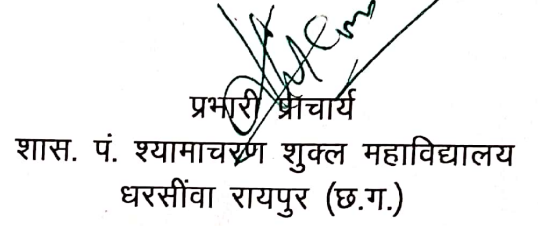 प्रभारी प्राचार्य
शास. पं. श्यामाचरण शुक्ल महाविद्यालय
धरसींवा रायपुर (छ.ग.)